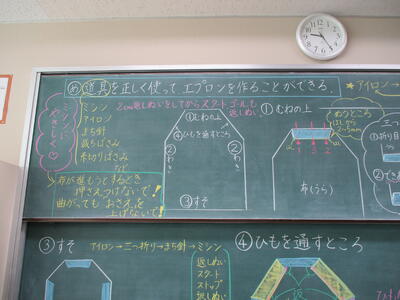 め 道具を正しく使って エプロンを作ることができる。
ミシンに
やさしく♡
ミシン
アイロン
まち針
裁ちばさみ
糸切りばさみ
など
布が進もうとするとき
押さえつけないで!
曲がっても おさえを
上げないで!
2cm返しぬいをしてからスタート ゴールも
返しぬい
①むねの上
④ひもを通すところ
②わき
②わき
③すそ
①むねの上
ぬうところ
はしから
2~5mm
3
布(うら)
★アイロン→
三つ
①折り目
②でき
③すそ
アイロン→三つ折り→まち針→ミシン
返しぬい
スタート
ストップ
返しぬい
④ひもを通すところ